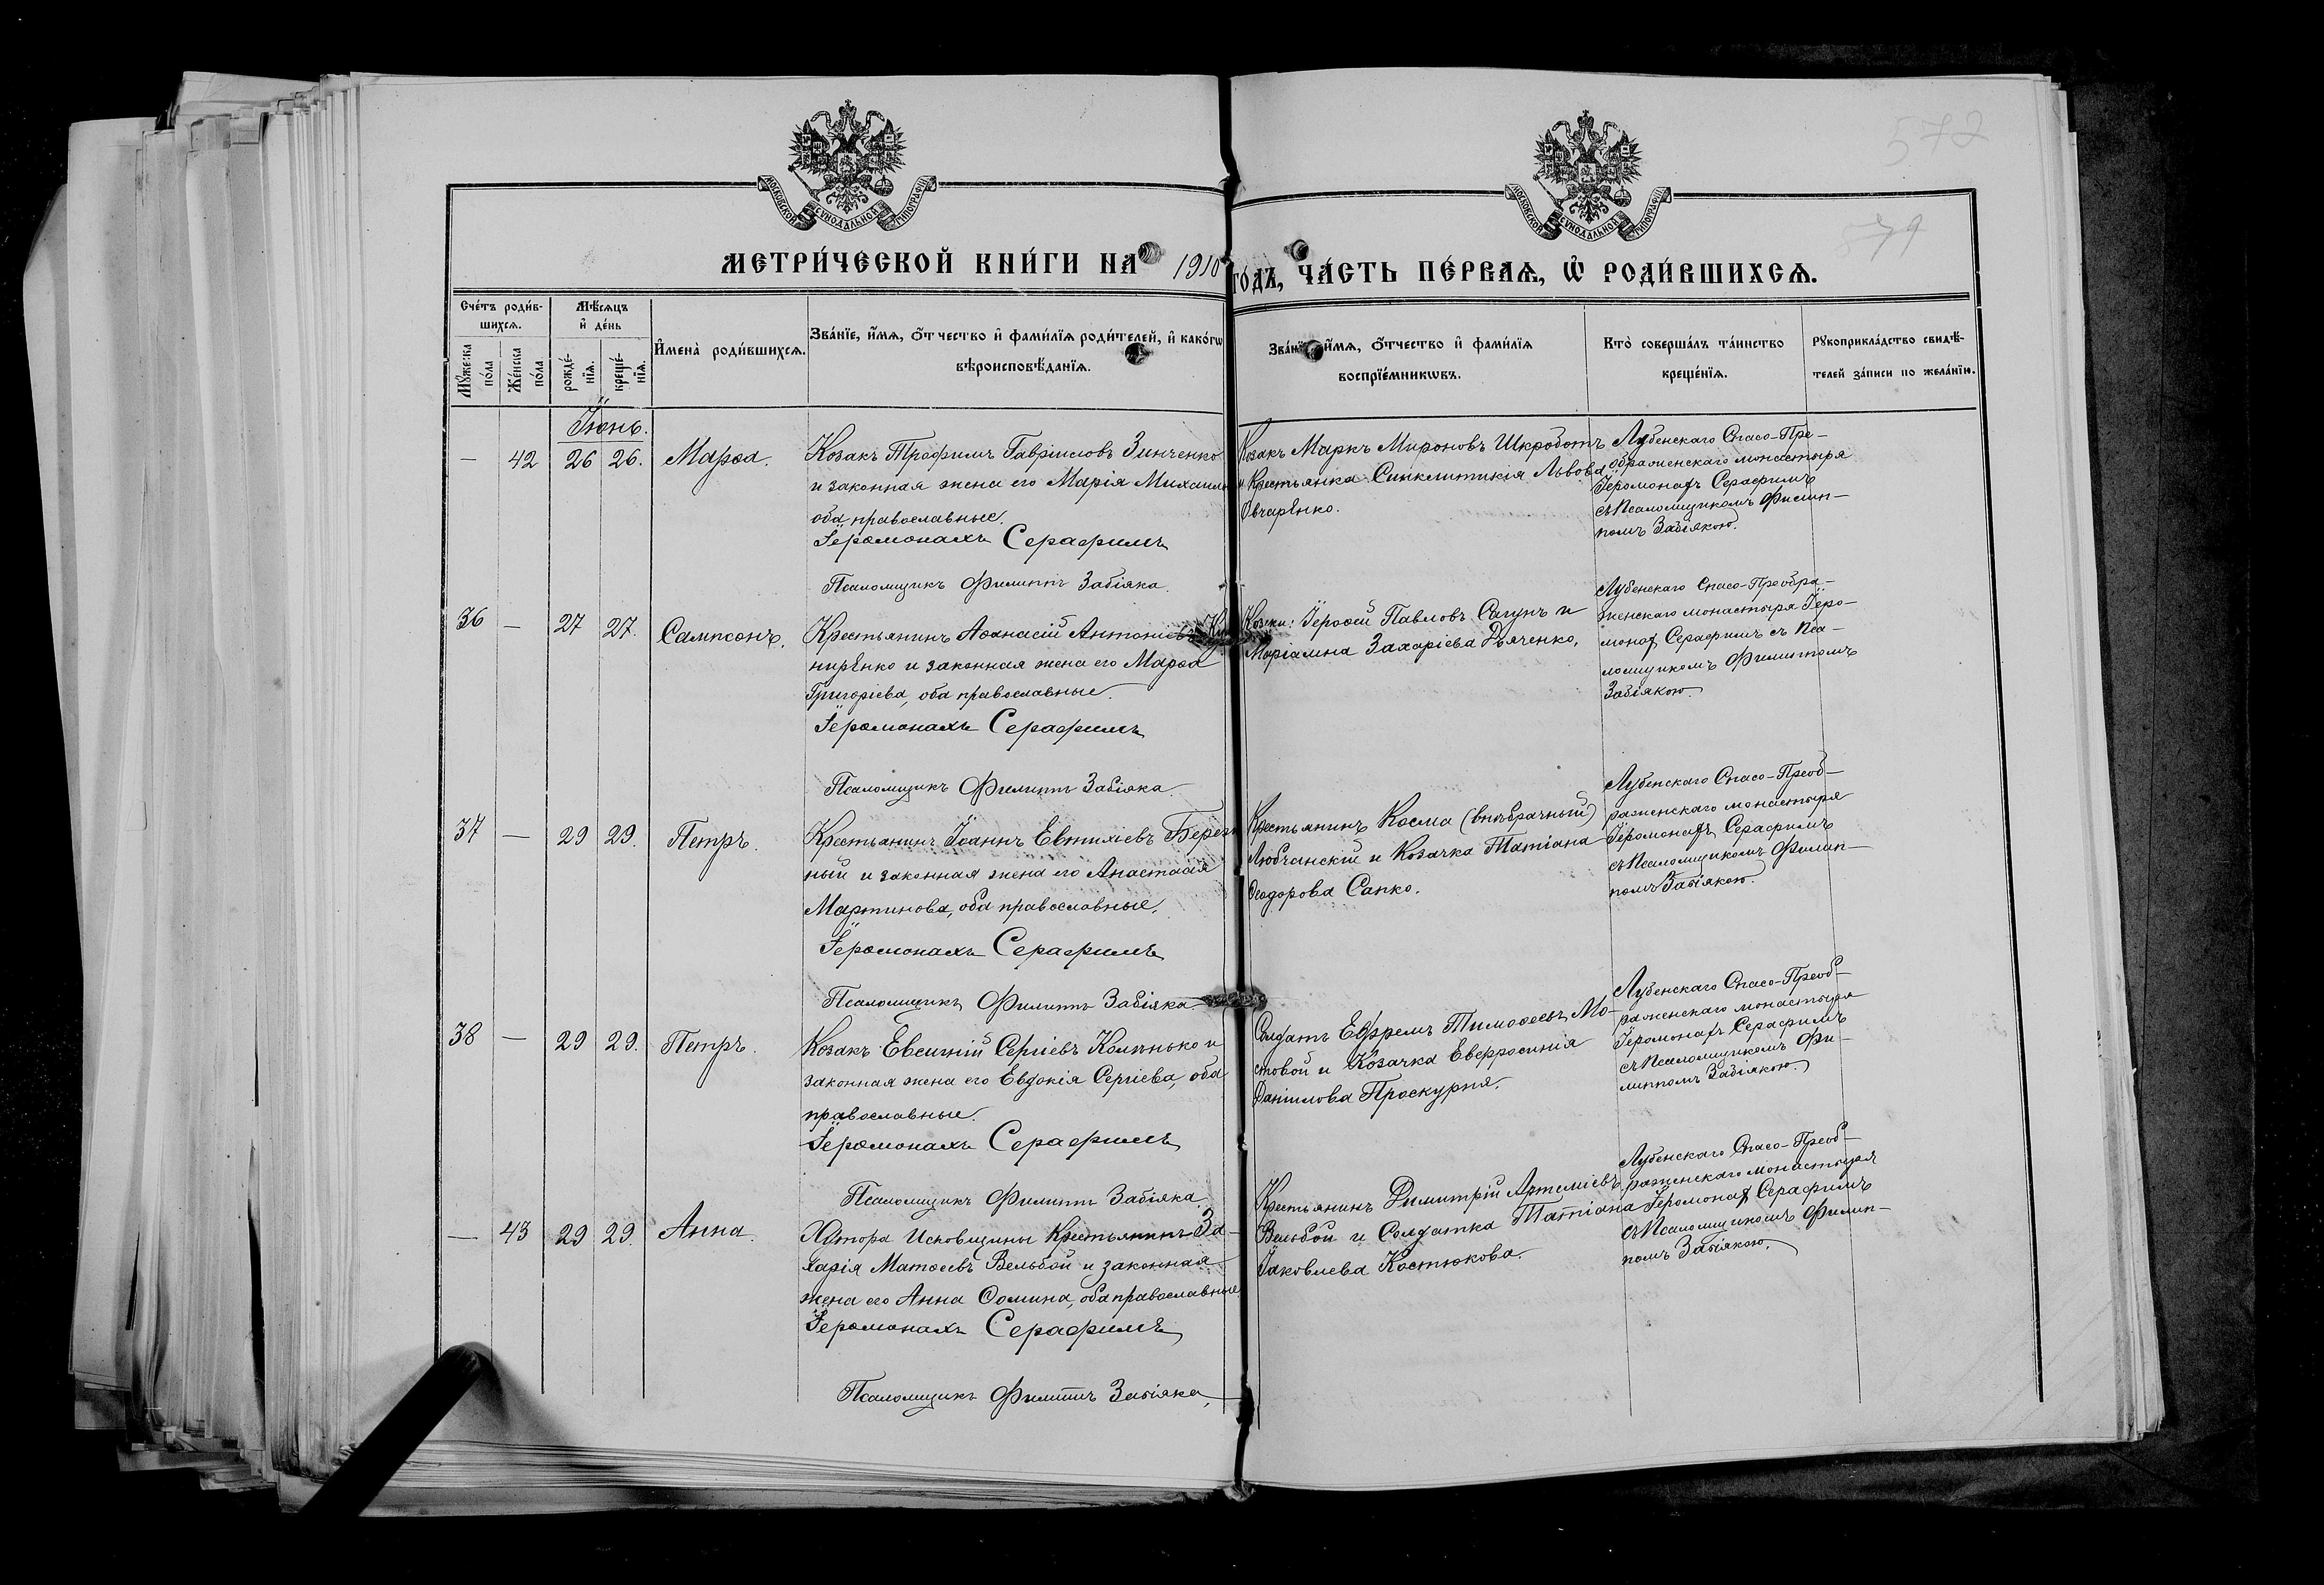 МОСКОВСКОЙ СѴНОДАЛЬНОЙ ТИПОГРАФІИ
МОСКОВСКОЙ СѴНОДАЛЬНОЙ ТИПОГРАФІИ
572
79
МЕТРИ́ЧЕСКОЙ КНИ́ГИ НА 1910 ГО́ДЪ, ЧА́СТЬ ПЕ́РВАѦ, Ѡ҆ РОДИ́ВШИХСѦ.
Сче́тъ роди́в-
шихсѧ.
Мѣ́сѧцъ
и҆ де́нь
Мꙋ́жеска по́ла
Же́нска по́ла
рожде́-
нїѧ.
креще́-
нїѧ.
И҆мена̀ роди́вшихсѧ.
Зва́нїе, и҆́мѧ, ѻ҆́тчество и҆ фами́лїѧ роди́телей, и҆ како́гѡ
вѣроисповѣ́данїѧ.
Зва́нїе, и҆́мѧ, ѻ҆́тчество и҆ фами́лїѧ
воспрїе́мникѡвъ.
Кто̀ соверша́лъ та́инство
креще́нїѧ.
Рꙋкоприкла́дство свидѣ́-
телей за́писи по жела́нїю.
Іюнь.
— 42 26 26. Марѳа.
Козакъ Трофимъ Гавріиловъ Зинченко
и законная жена его Марія Михаил
оба православные.
Іеромонахъ Серафимъ
Псаломщикъ Филиппъ Забіяка.
Козакъ Маркъ Мироновъ Шкроботъ
и Крестьянка Синклитикія Львова
Овчаренко.
Лубенскаго Спасо-Пре-
ображенскаго монастыря
Іеромонахъ Серафимъ
съ Псаломщикомъ Филип-
помъ Забіякою.
36 — 27 27. Сампсонъ.
Крестьянинъ Аѳанасій Антоніевъ Ку
ниренко и законная жена его Марѳа
Григоріева, оба православные.
Іеромонахъ Серафимъ
Псаломщикъ Филиппъ Забіяка.
Козаки: Іероѳей Павловъ Сагунъ и
Маріамна Захаріева Дьяченко.
Лубенскаго Спасо-Преобра-
женскаго монастыря Іеро-
монах Серафимъ съ Пса-
ломщикомъ Филиппомъ
Забіякою.
37 — 29 29. Петръ.
Крестьянинъ Іоаннъ Евтихіевъ Берез
ный и законная жена его Анастасія
Мартинова, оба православные.
Іеромонахъ Серафимъ
Псаломщикъ Филиппъ Забіяка.
Крестьянинъ Косма (внѣбрачный)
Любчанскій и Козачка Татіана
Ѳеодорова Сапко.
Лубенскаго Спасо-Преоб-
раженскаго монастыря
Іеромонахъ Серафимъ
съ Псаломщикомъ Филип-
помъ Забіякою.
38 — 29 29. Петръ.
Козакъ Евсигній Сергіевъ Колѣнько и
законная жена его Евдокія Сергіева, оба
православные.
Іеромонахъ Серафимъ
Псаломщикъ Филиппъ Забіяка.
Солдатъ Ефремъ Тимоѳеевъ Мо-
стовой и Козачка Евфросинія
Даніилова Проскурня.
Лубенскаго Спасо-Преоб-
раженскаго монастыря
Іеромонахъ Серафимъ
съ Псаломщикомъ Фи-
липпомъ Забіякою.
— 43 29 29. Анна.
Хутора Исковщины Крестьянинъ За-
харія Матѳеевъ Вельбой и законная
жена его Анна Ѳомина, оба православные.
Іеромонахъ Серафимъ
Псаломщикъ Филиппъ Забіяка.
Крестьянинъ Димитрій Артеміевъ
Вельбой и Солдатка Татіана
Іаковлева Костюкова.
Лубенскаго Спасо-Преоб-
раженскаго монастыря
Іеромонах Серафимъ
съ Псаломщикомъ Филип-
помъ Забіякою.